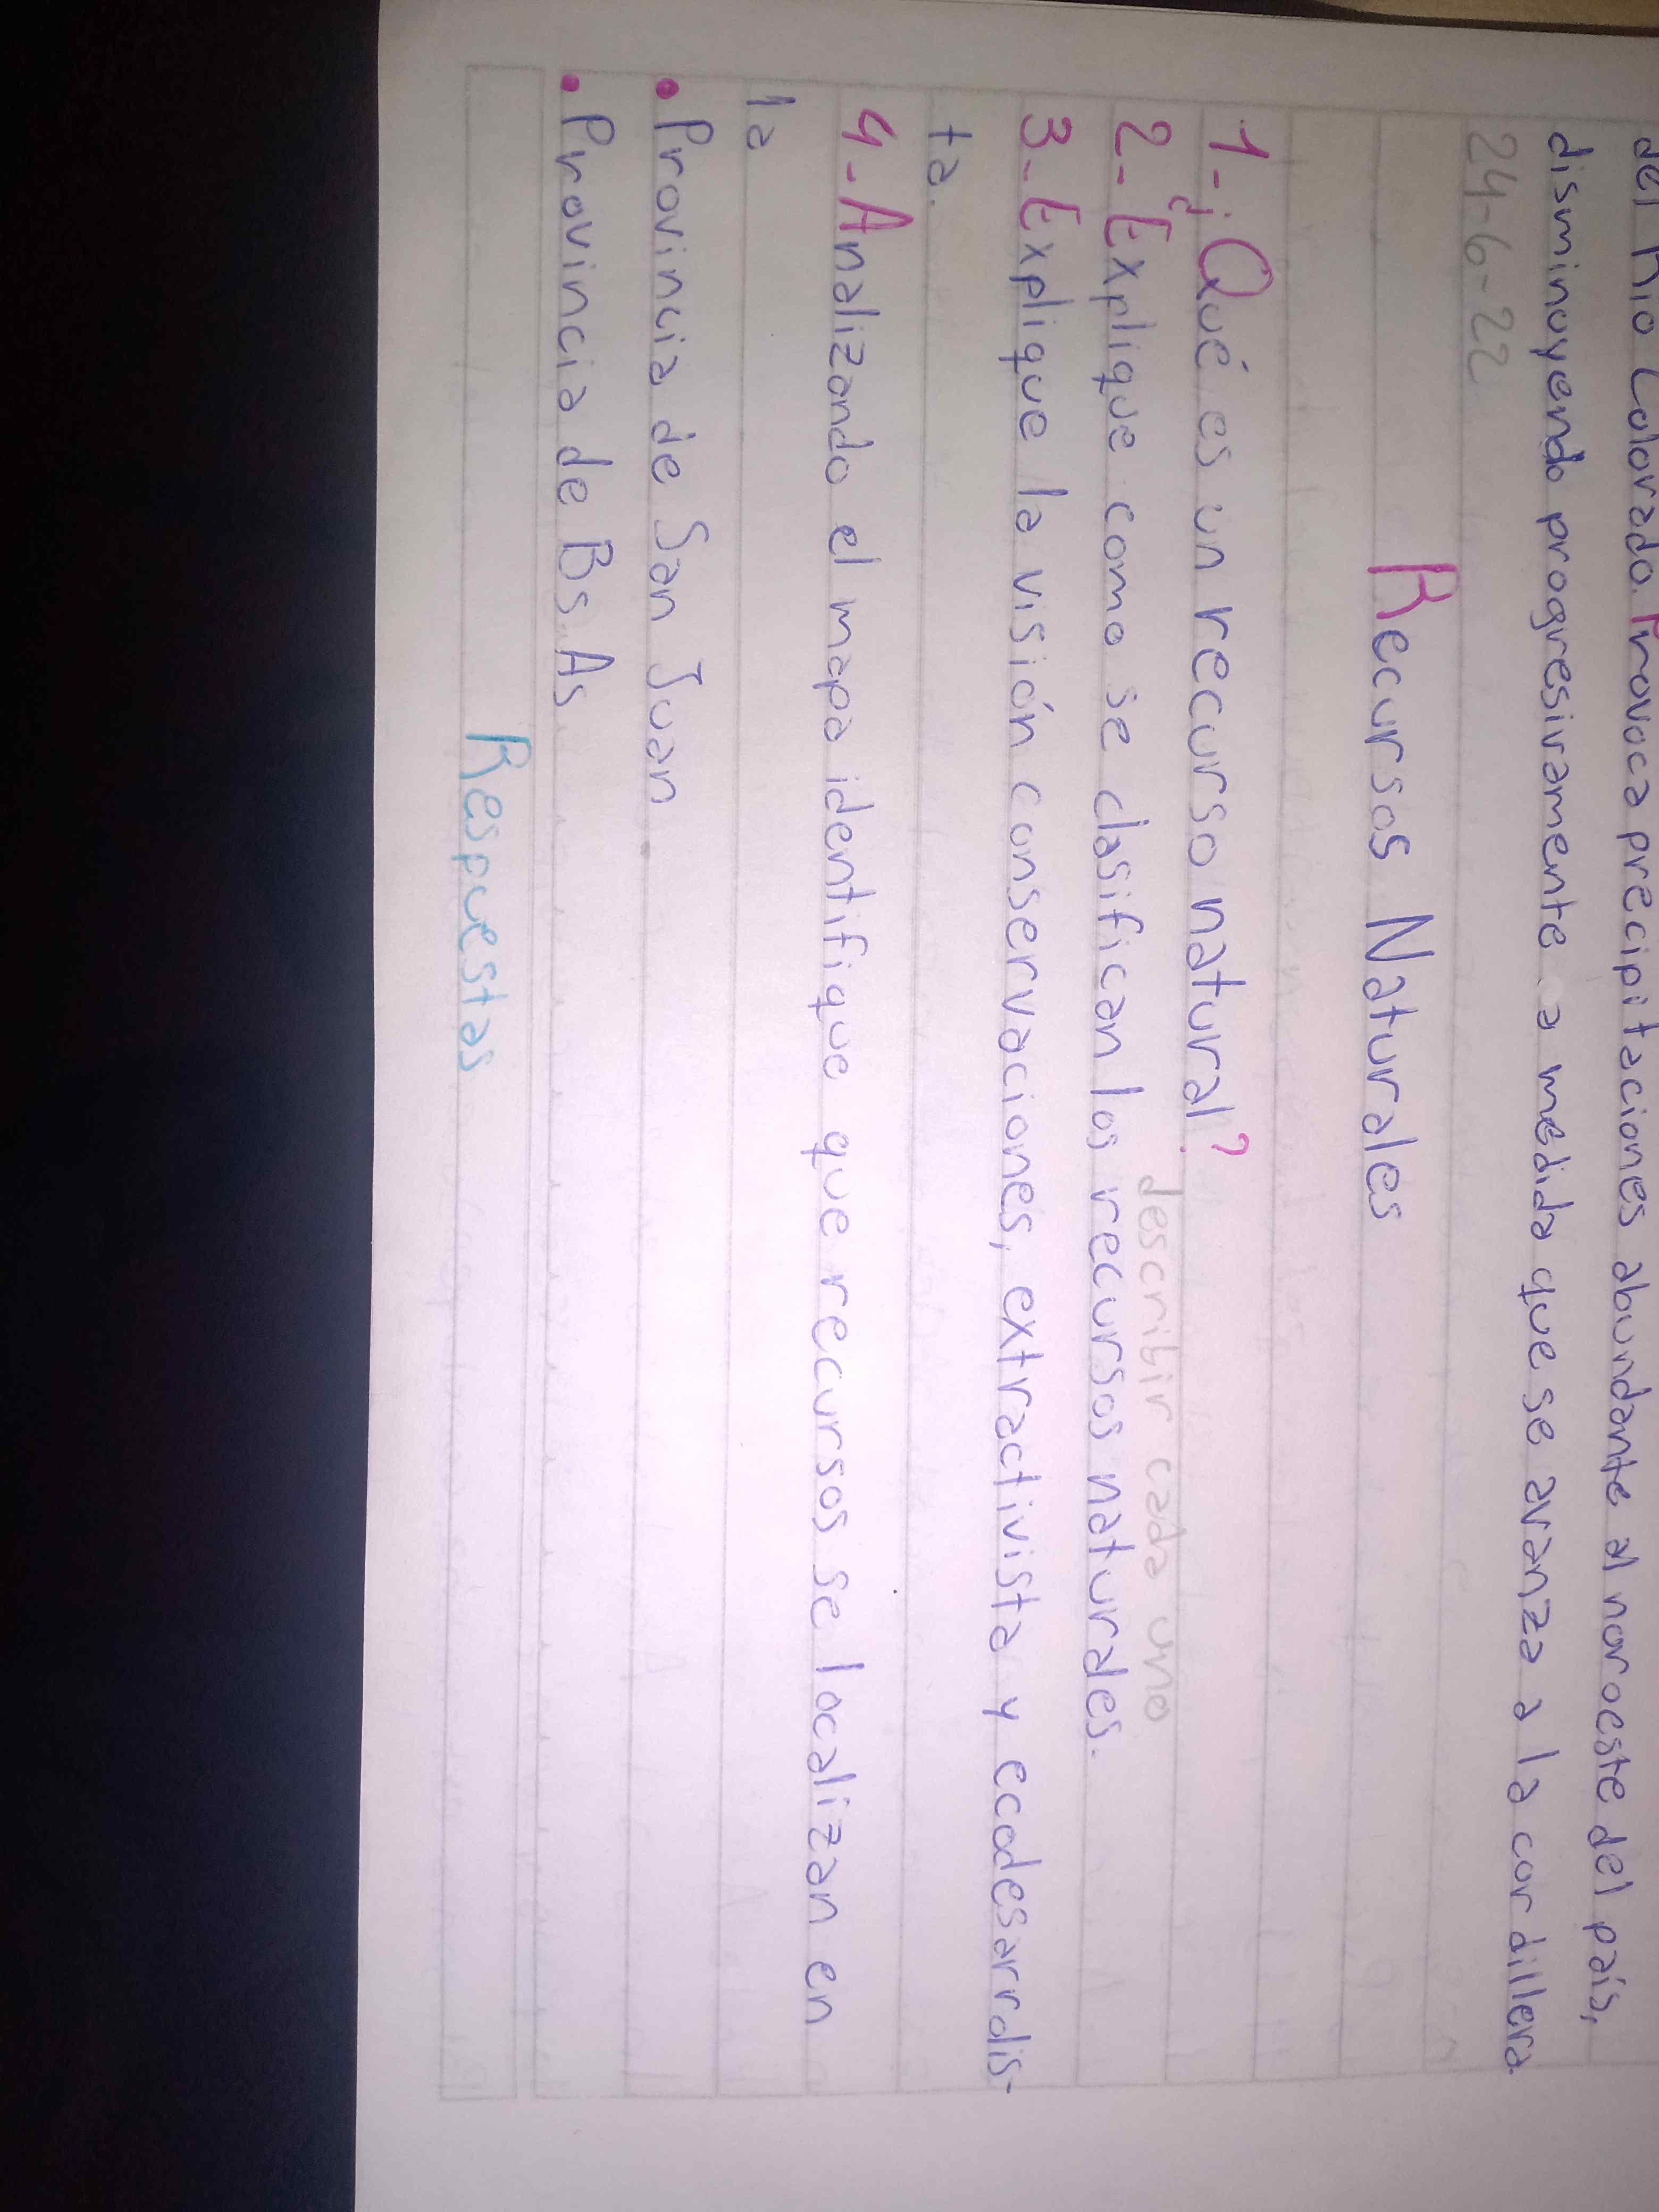 del Río Colorado. Provoca precipitaciones abundante al noroeste del país,
disminuyendo progresivamente a medida que se avanza a la cordillera.
24-6-22
Recursos Naturales
1-¿Qué es un recurso natural?
describir cada uno
2-Explique como se clasifican los recursos naturales.
3-Explique la visión conservaciones, extractivista y ecodesarrolis-
ta.
4-Analizando el mapa identifique que recursos se localizan en
la
• Provincia de San Juan
• Provincia de Bs. As
Respuestas